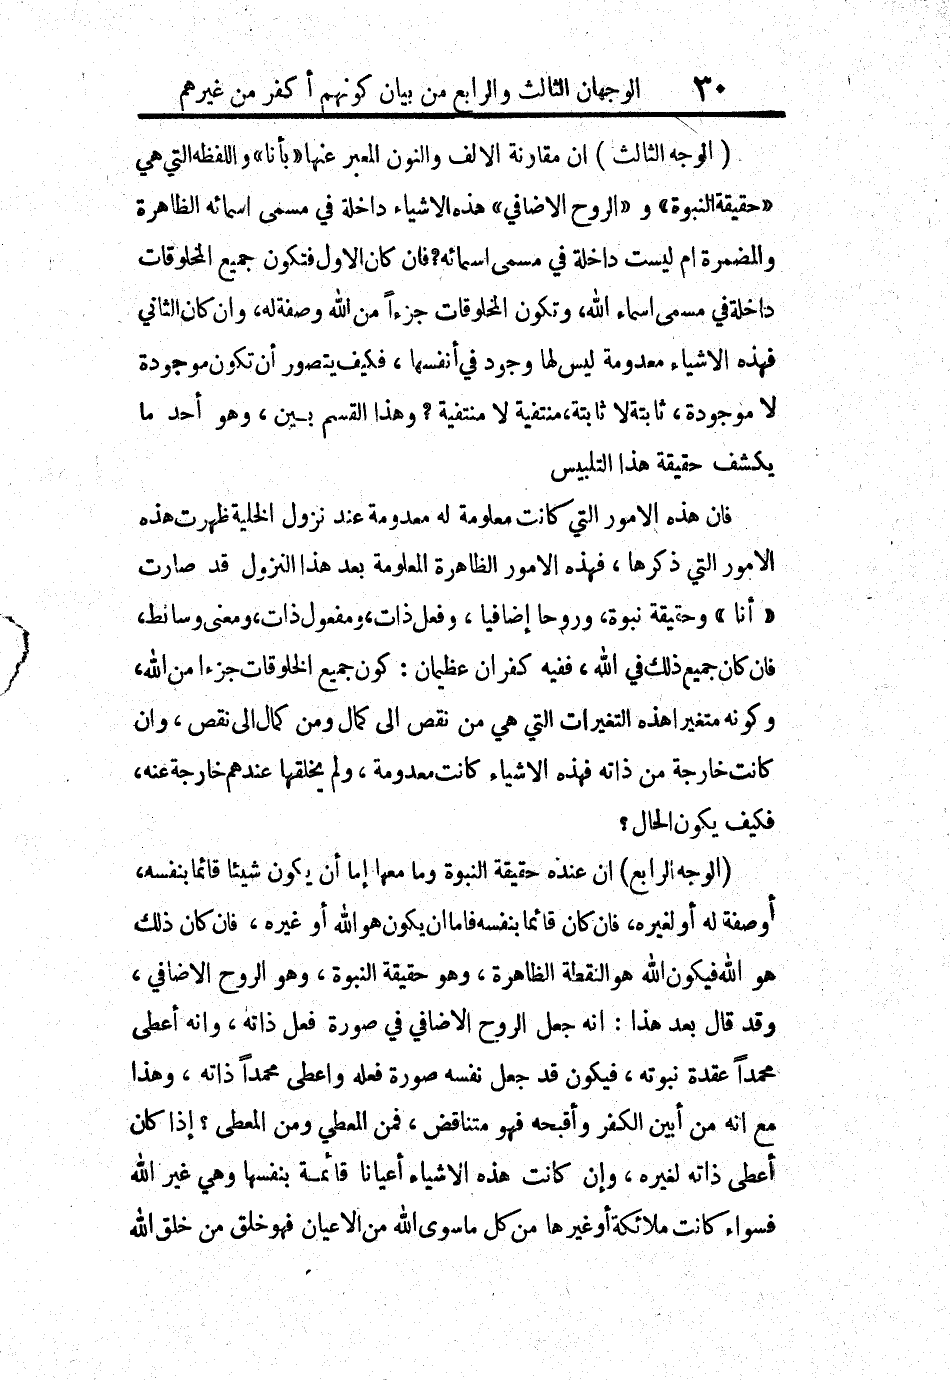 ٣٠ الوجهان الثالث والرابع من بيان كونهم أكفر من غيرهم
( الوجه الثالث ) ان مقارنة الالف والنون المعبر عنها «بأنا» واللفظه التي هي
«حقيقة النبوة» و «الروح الاضافي» هذه الاشياء داخلة في مسمى اسمائه الظاهرة
والمضمرة ام ليست داخلة في مسمى اسمائه؟ فان كان الاول فتكون جميع المخلوقات
داخلة في مسمى اسماء الله، وتكون المخلوقات جزءاً من الله وصفة له، وان كان الثاني
فهذه الاشياء معدومة ليس لها وجود في أنفسها ، فكيف يتصور أن تكون موجودة
لا موجودة ، ثابتة لا ثابتة، منتفية لا منتفية ؟ وهذا القسم بين ، وهو أحد ما
يكشف حقيقة هذا التلبيس
فان هذه الامور التي كانت معلومة له معدومة عند نزول الخلية ظهرت هذه
الامور التي ذكرها ، فهذه الامور الظاهرة المعلومة بعد هذا النزول قد صارت
« أنا » وحقيقة نبوة، وروحا إضافيا ، وفعل ذات، ومفعول ذات، ومعنى وسائط،
فان كان جميع ذلك في الله ، ففيه كفران عظيمان : كون جميع المخلوقات جزءا من الله،
وكونه متغيرا هذه التغيرات التي هي من نقص الى كمال ومن كمال الى نقص ، وان
كانت خارجة من ذاته فهذه الاشياء كانت معدومة ، ولم يخلقها عندهم خارجة عنه،
فكيف يكون الحال ؟
(الوجه الرابع) ان عنده حقيقة النبوة وما معها إما أن يكون شيئا قائما بنفسه،
أو صفة له أو لغيره، فان كان قائما بنفسه فاما ان يكون هو الله أو غيره ، فان كان ذلك
هو الله فيكون الله هو النقطة الظاهرة ، وهو حقيقة النبوة ، وهو الروح الاضافي ،
وقد قال بعد هذا : انه جعل الروح الاضافي في صورة فعل ذاته ، وانه أعطى
محمداً عقدة نبوته ، فيكون قد جعل نفسه صورة فعله واعطى محمداً ذاته ، وهذا
مع انه من أبين الكفر وأقبحه فهو متناقض ، فمن المعطي ومن المعطى ؟ إذا كان
أعطى ذاته لغيره ، وإن كانت هذه الاشياء أعيانا قائمة بنفسها وهي غير الله
فسواء كانت ملائكة أو غيرها من كل ما سوى الله من الاعيان فهو خلق من خلق الله